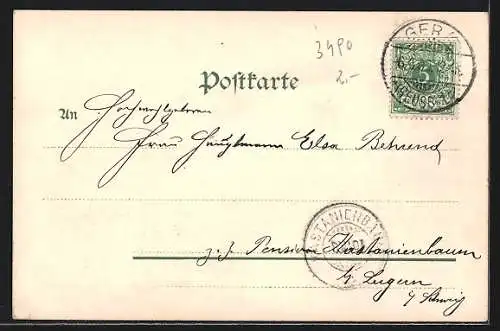 3490
2.-
GERA
5
Postkarte
An Hochwohlgeboren
Frau Hauptmann Elsa Behrend
KASTANIENBAUM
z. Z. Pension Kastanienbaum
b/ Luzern
i/ Schweiz